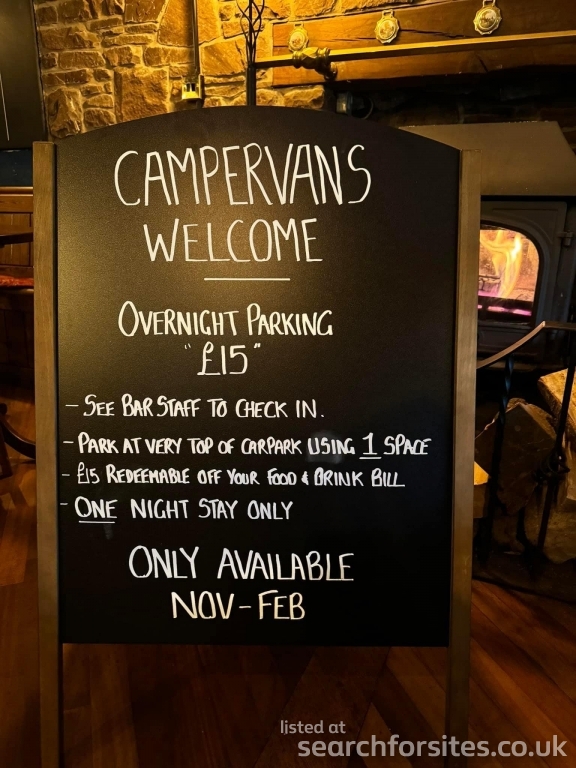 CAMPERVANS
WELCOME
OVERNIGHT PARKING
"£15"
- SEE BAR STAFF TO CHECK IN.
- PARK AT VERY TOP OF CARPARK USING 1 SPACE
- £15 REDEEMABLE OFF YOUR FOOD & DRINK BILL
- ONE NIGHT STAY ONLY
ONLY AVAILABLE
NOV-FEB
listed at
searchforsites.co.uk